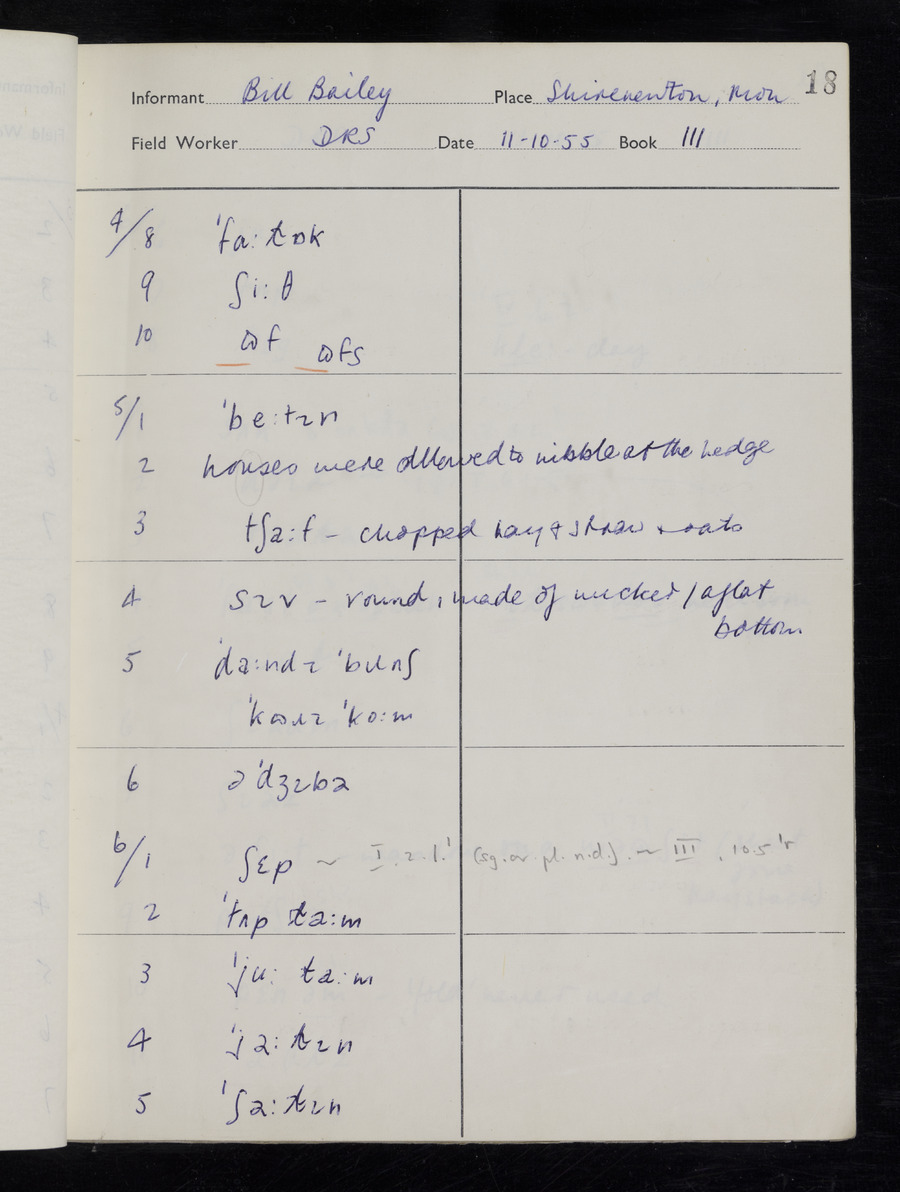 18
Informant Bill Bailey Place Shirenewton, Mon
Field Worker DRS Date 11-10-55 Book III
4/8 ˈfɑ: tɒk
9 ʃi: θ
10 ɷf ɷfs
5/1 ˈbe:tɪn
2 horses were allowed to nibble at the hedge
3 tʃa:f – chopped hay & straw + oats
4 sɪv – round, made of wicker / a flat
bottom
5 ˈda:ndɪ ˈbɹʌnʃ
ˈkɷɹɪ ˈko:m
6 əˈdʒɪbə
6/1 ʃɛp ~ I. 2. 1.' (sg. or pl. n.d.). ~ III. 10.5 'r
2 ˈtʌp ta:m
3 ˈju: ta:m
4 ˈja: tɪn
5 ˈʃa: tɪn